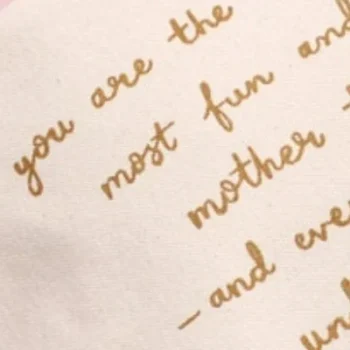 you are the
most fun and
mother
- and